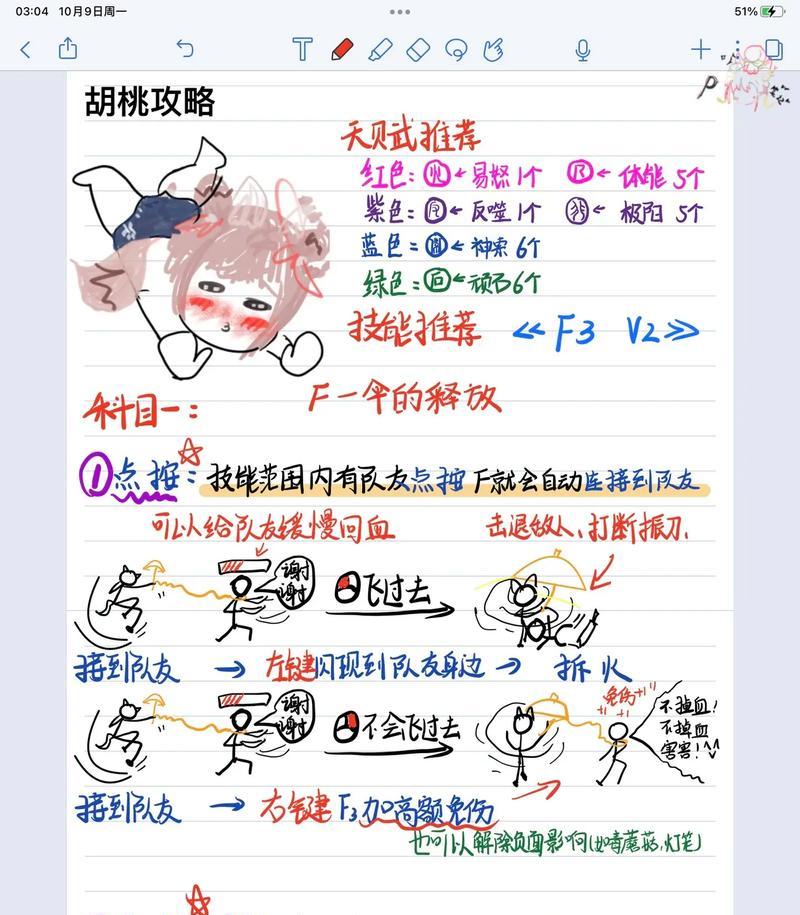 03:04 10月9日周一
51%
胡桃攻略
天赋推荐
红色：火←易怒1个 尺←体能5个
紫色：反←反噬1个 ←极阳5个
蓝色：←神索6个
绿色：←顽6个
技能推荐 ≪F3 V2≫
科目一： F一伞的释放
①点按：技能范围内有队友点按F就会自动连接到队友
可以给队友缓慢回血 击退敌人、打断振刀.
谢谢
飞过去
接到队友 → 左键闪现到队友身边 → 拆火
谢谢
不会飞过去
免伤+1
不掉血!
不掉血
害害!
接到队友 → 右键F3加高额免伤
也可以解除负面影响(如毒蘑菇,灯笼)